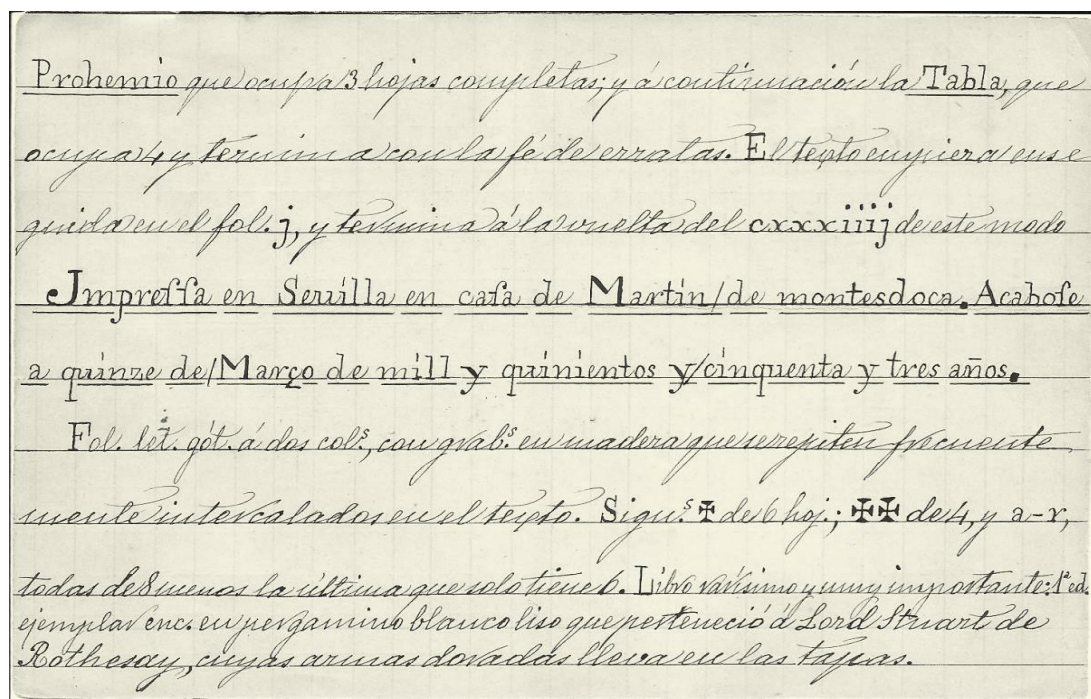 Prohemio que ocupa 3 hojas completas; y á continuación la Tabla, que
ocupa 4 y termina con la fé de erratas. El texto empieza ense
guida en el fol. j, y termina á la vuelta del cxxxiiij de este modo
Jmpreſſa en Seuilla en caſa de Martin/de montesdoca. Acaboſe
a quinze de/Março de mill y quinientos y/cinquenta y tres años.
Fol. let. gót. á dos col.ˢ, con grab.ˢ en madera que se repiten frecuente
mente intercalados en el texto. Sign.ˢ ✠ de 6 hoj.; ✠✠ de 4, y a-r,
todas de 8 menos la última que solo tiene 6. Libro rarísimo y muy importante: 1ª ed.
ejemplar enc. en pergamino blanco liso que perteneció á Lord Stuart de
Rothesay, cuyas armas doradas lleva en las tapas.